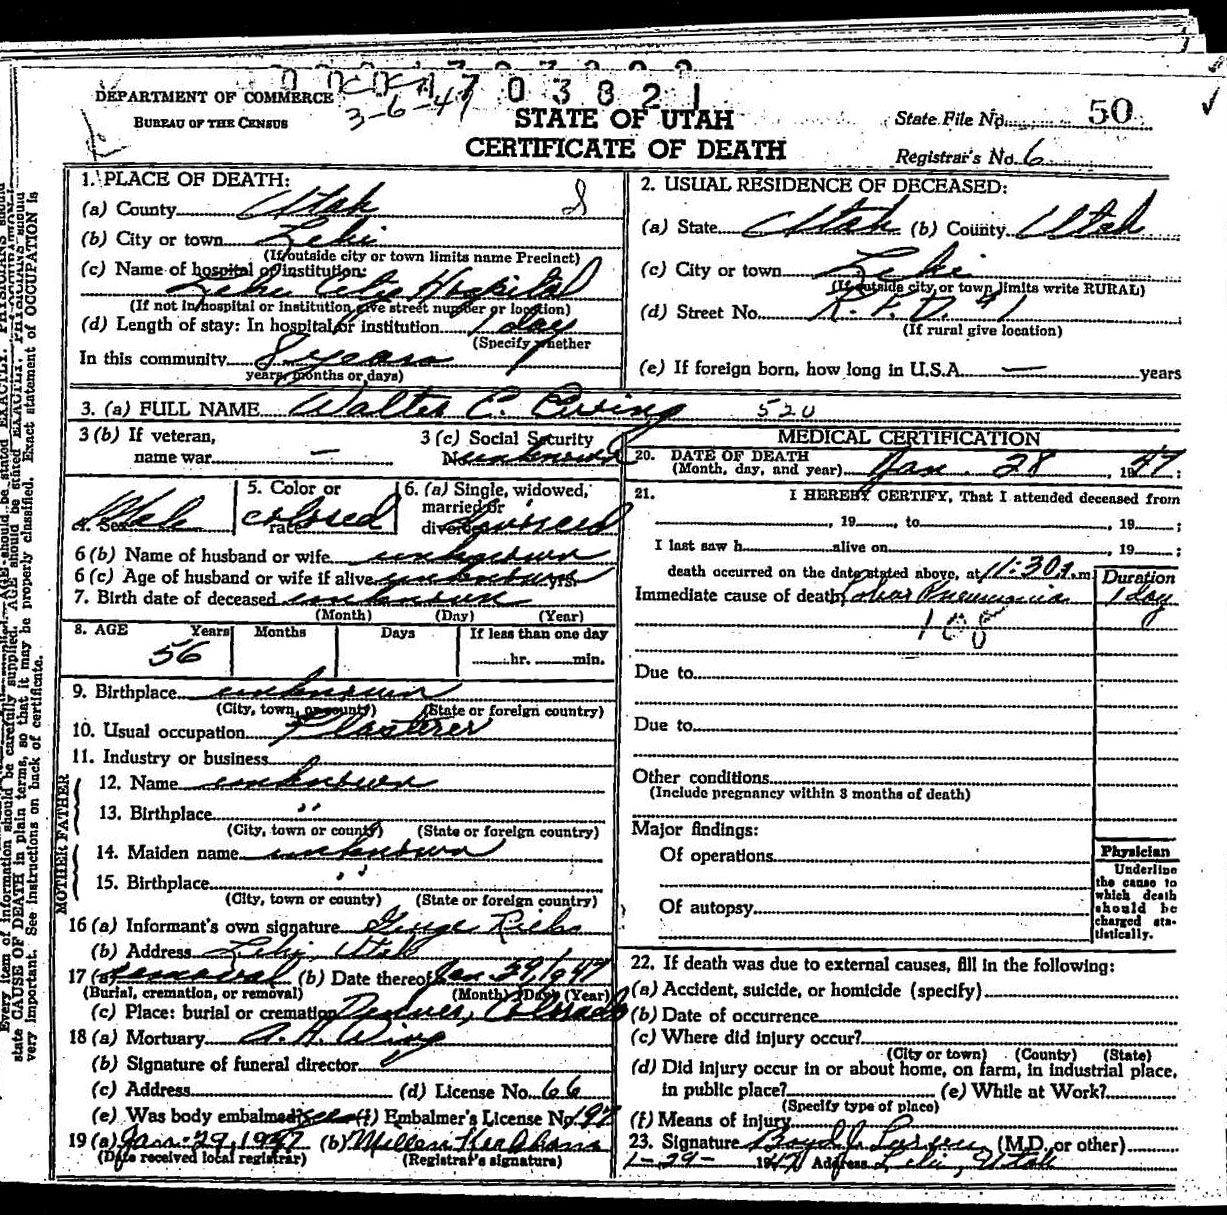 DEPARTMENT OF COMMERCE
BUREAU OF THE CENSUS
3-6-47
0 3 8 2 1
STATE OF UTAH
CERTIFICATE OF DEATH
State File No. 50
Registrar's No. 6
1. PLACE OF DEATH:
(a) County Utah
(b) City or town Lehi
(If outside city or town limits name Precinct)
(c) Name of hospital or institution:
Lehi City Hospital
(If not in hospital or institution give street number or location)
(d) Length of stay: In hospital or institution 1 day
(Specify whether
In this community 8 years
years, months or days)
2. USUAL RESIDENCE OF DECEASED:
(a) State Utah (b) County Utah
(c) City or town Lehi
(If outside city or town limits write RURAL)
(d) Street No. R.F.D. #1
(If rural give location)
(e) If foreign born, how long in U.S.A. — years
3. (a) FULL NAME Walter C. Ewing 520
3 (b) If veteran,
name war —
3 (c) Social Security
No. unknown
4. Sex Male
5. Color or
race colored
6. (a) Single, widowed,
married or
divorced divorced
6 (b) Name of husband or wife unknown
6 (c) Age of husband or wife if alive unknown yrs.
7. Birth date of deceased unknown
(Month) (Day) (Year)
8. AGE Years Months Days If less than one day
56 hr. min.
9. Birthplace unknown
(City, town, or county) (State or foreign country)
10. Usual occupation Plasterer
11. Industry or business
FATHER
12. Name unknown
13. Birthplace "
(City, town or county) (State or foreign country)
MOTHER
14. Maiden name unknown
15. Birthplace "
(City, town or county) (State or foreign country)
16 (a) Informant's own signature George
(b) Address Lehi, Utah
17 (a) removal (b) Date thereof Jan. 29, 1947
(Burial, cremation, or removal) (Month) (Day) (Year)
(c) Place: burial or cremation Denver, Colorado
18 (a) Mortuary A. H. Wing
(b) Signature of funeral director
(c) Address (d) License No. 66
(e) Was body embalmed yes (f) Embalmer's License No. 192
19 (a) Jan-29, 1947 (b)
(Date received local registrar) (Registrar's signature)
MEDICAL CERTIFICATION
20. DATE OF DEATH
(Month, day, and year) Jan. 28 1947;
21. I HEREBY CERTIFY, That I attended deceased from
, 19 , to , 19 ;
I last saw h alive on , 19 ;
death occurred on the date stated above, at 11:30 m
Duration
Immediate cause of death Lobar Pneumonia 1 day
108
Due to
Due to
Other conditions
(Include pregnancy within 3 months of death)
Major findings:
Of operations
Of autopsy
Physician
Underline
the cause to
which death
should be
charged sta-
tistically.
22. If death was due to external causes, fill in the following:
(a) Accident, suicide, or homicide (specify)
(b) Date of occurrence
(c) Where did injury occur?
(City or town) (County) (State)
(d) Did injury occur in or about home, on farm, in industrial place,
in public place? (e) While at Work?
(Specify type of place)
(f) Means of injury
23. Signature Boyd J. Larsen (M.D. or other)
1-29- 1947 Address Lehi, Utah
state CAUSE OF DEATH in plain terms, so that it may be properly classified. Exact statement of OCCUPATION is
very important. See instructions on back of certificate.